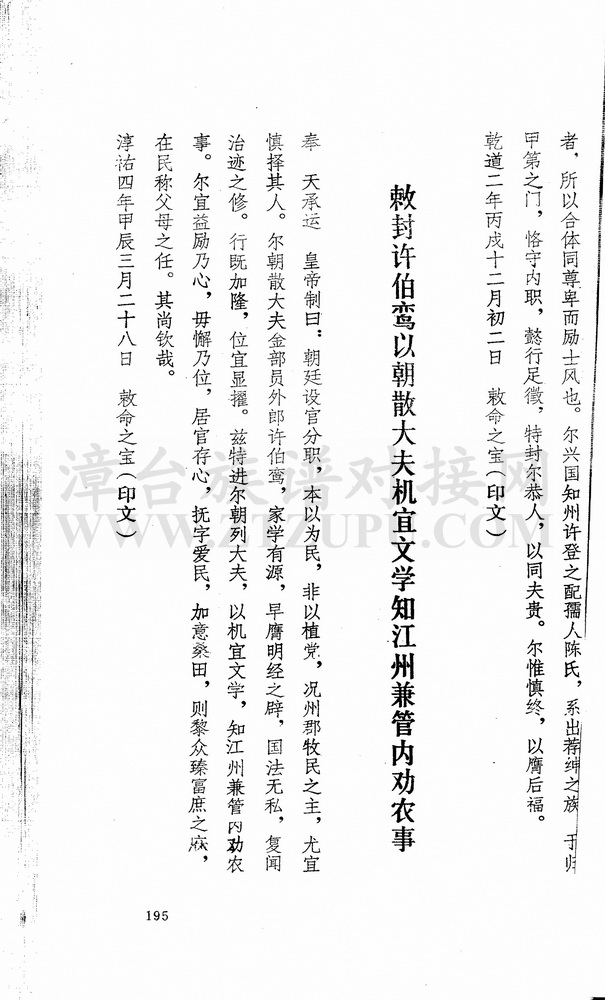 者，所以合体同尊卑而励士风也。尔兴国知州许登之配孺人陈氏，系出荐绅之族，于归
甲第之门，恪守内职，懿行足徵，特封尔恭人，以同夫贵。尔惟慎终，以膺后福。
乾道二年丙戌十二月初二日　敕命之宝（印文）
敕封许伯鸾以朝散大夫机宜文学知江州兼管内劝农事
奉　天承运　皇帝制曰：朝廷设官分职，本以为民，非以植党，况州郡牧民之主，尤宜
慎择其人。尔朝散大夫金部员外郎许伯鸾，家学有源，早膺明经之辟，国法无私，复闻
治迹之修。行既加隆，位宜显擢。兹特进尔朝列大夫，以机宜文学，知江州兼管内劝农
事。尔宜益励乃心，毋懈乃位，居官存心，抚字爱民，加意桑田，则黎众臻富庶之庥，
在民称父母之任。其尚钦哉。
淳祐四年甲辰三月二十八日　敕命之宝（印文）
195
漳台族谱对接网
WWW.ZTZUPU.COM